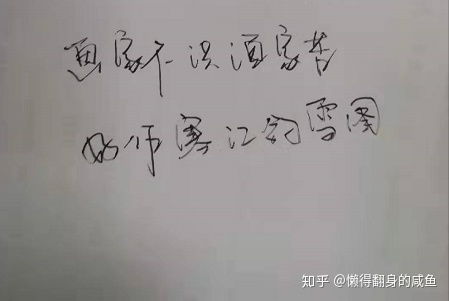 画家不识渔家苦
好作寒江钓雪图
知乎 @懒得翻身的咸鱼